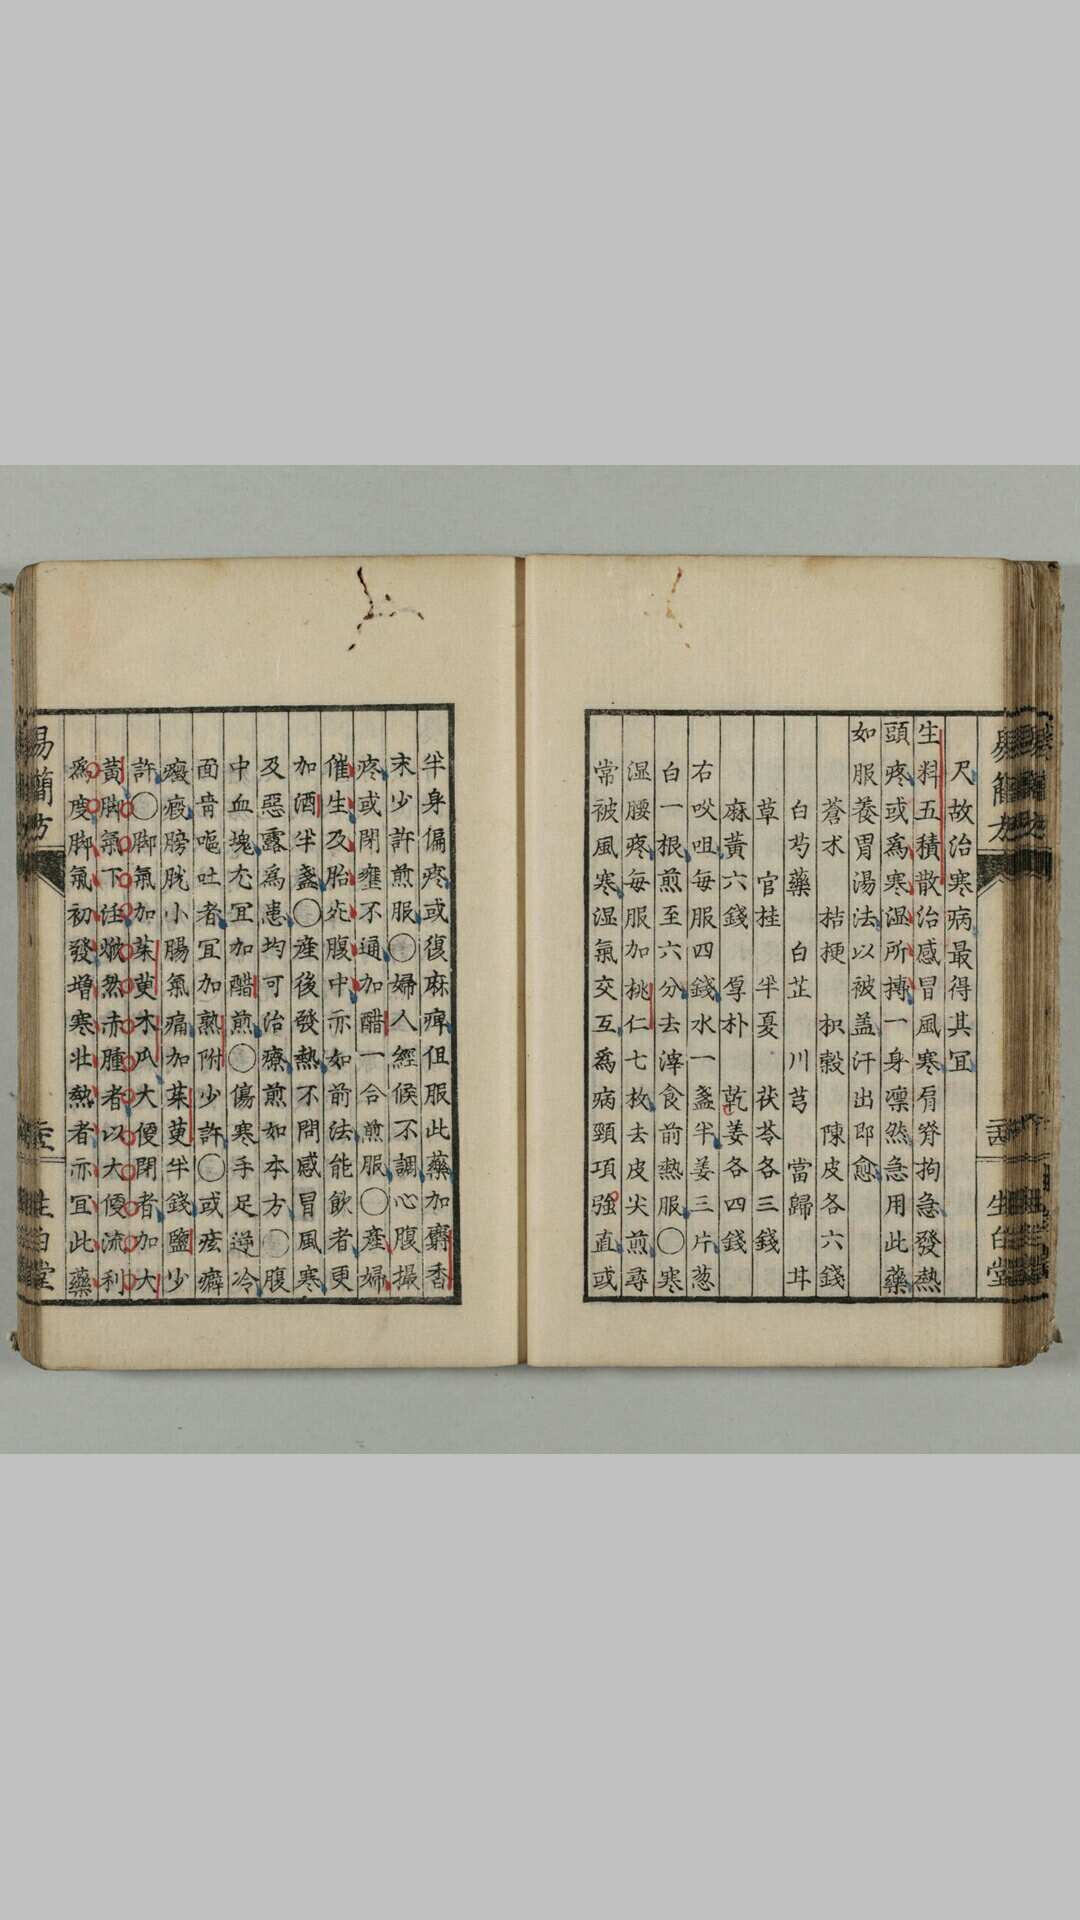 易簡方
生白堂
尺故治寒病最得其宜
生料五積散治感冒風寒肩脊拘急發熱
頭疼或爲寒濕所搏一身凛然急用此藥
如服養胃湯法以被盖汗出即愈
蒼朮 桔梗 枳殼 陳皮各六錢
白芍藥 白芷 川芎 當歸 甘
草 官桂 半夏 茯苓各三錢
麻黃六錢 厚朴 乾姜各四錢
右㕮咀每服四錢水一盞半姜三片葱
白一根煎至六分去滓食前熱服〇寒
湿腰疼每服加桃仁七枚去皮尖煎尋
常被風寒湿氣交互爲病頸項强直或
半身偏疼或復麻痺但服此藥加麝香
末少許煎服〇婦人經候不調心腹撮
疼或閉壅不通加醋一合煎服〇産婦
催生及胎死腹中亦如前法能飲者更
加酒半盞〇産後發熱不問感冒風寒
及惡露爲患均可治療煎如本方〇腹
中血塊尤宜加醋煎〇傷寒手足逆冷
面青嘔吐者宜加熟附少許〇或痃癖
癥瘕膀胱小腸氣痛加茱萸半錢鹽少
許〇脚氣加茱萸木瓜大便閉者加大
黃脚氣下注焮然赤腫者以大便流利
爲度脚氣初發增寒壯熱者亦宜此藥
易簡方
生白堂